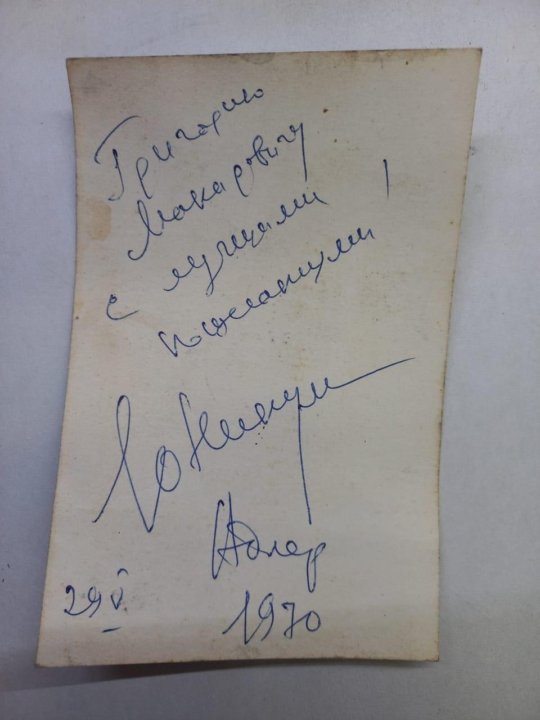 Григорию
Макаровичу
с лучшими
пожеланиями!
Ю Никул
Адлер
29 V
1970